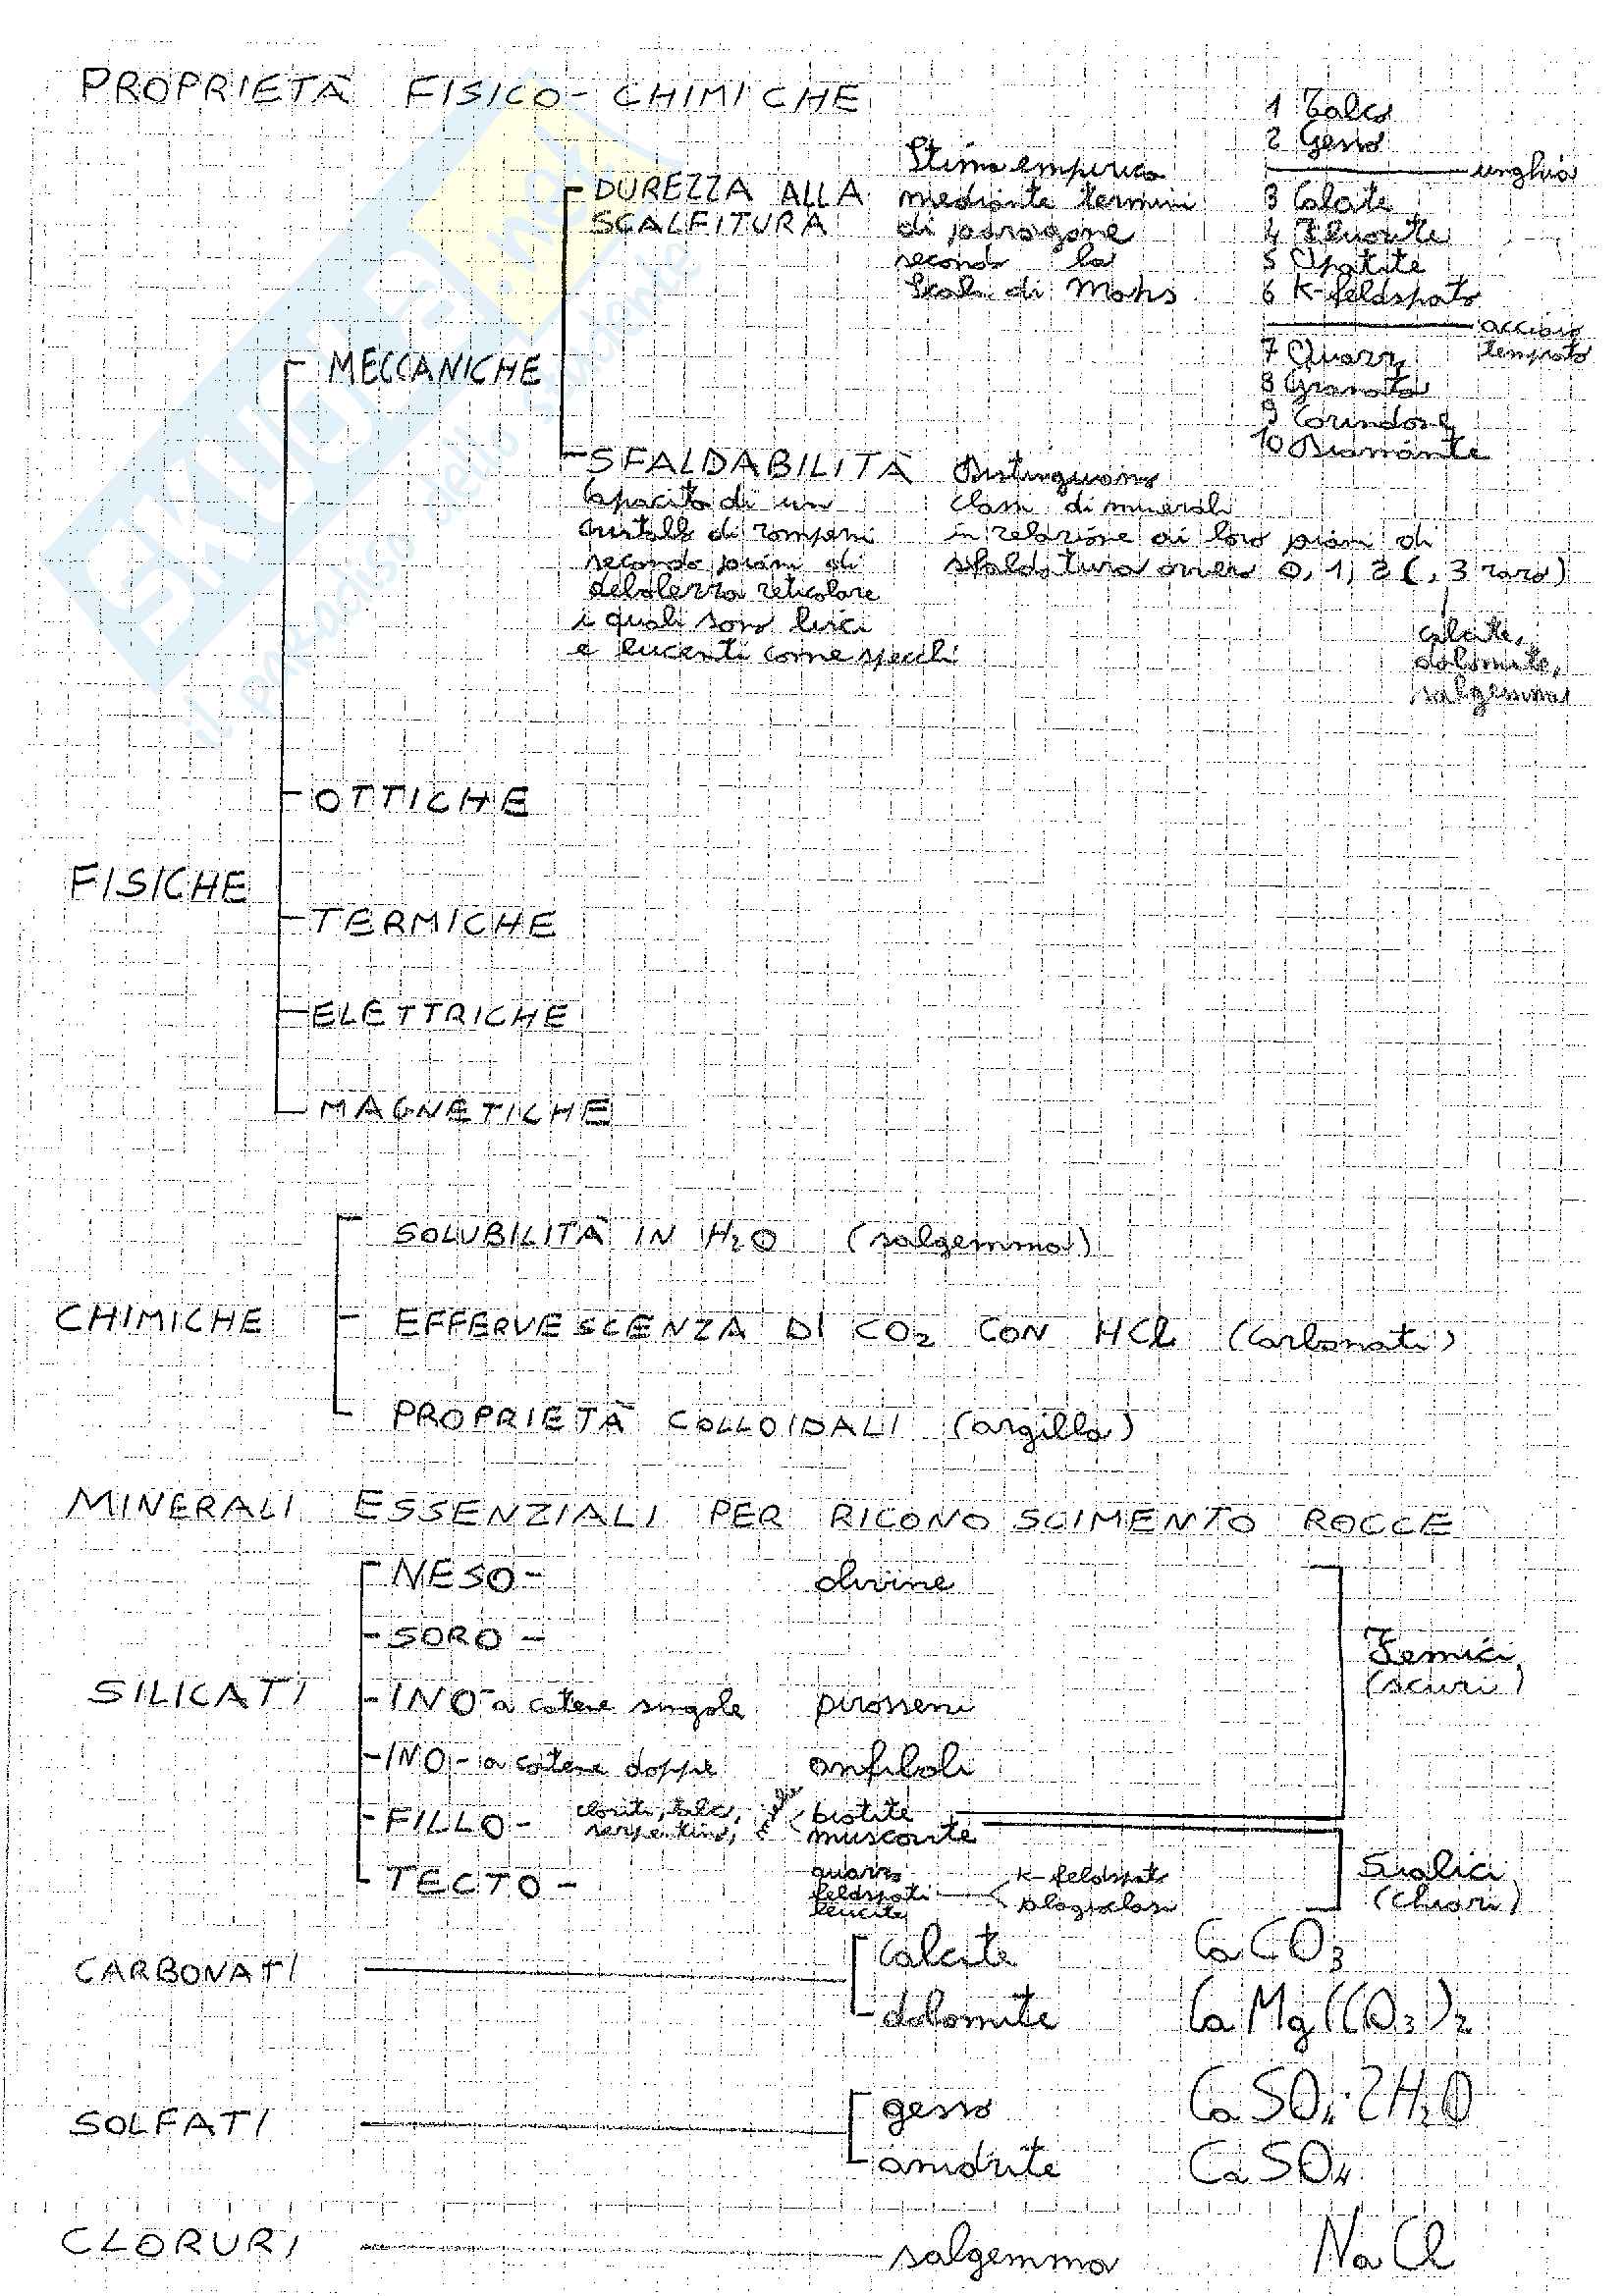 PROPRIETÀ FISICO-CHIMICHE
FISICHE
MECCANICHE
DUREZZA ALLA
SCALFITURA
Stima empirica
mediante termini
di paragone
secondo la
Scala di Mohs
1 Talco
2 Gesso
unghia
3 Calcite
4 Fluorite
5 Apatite
6 K-feldspato
acciaio
temprato
7 Quarzo
8 Granato
9 Corindone
10 Diamante
SFALDABILITÀ
Capacità di un
cristallo di rompersi
secondo piani di
debolezza reticolare
i quali sono lisci
e lucenti come specchi
Distinguiamo
classi di minerali
in relazione ai loro piani di
sfaldatura ovvero 0, 1, 2 (, 3 raro)
calcite,
dolomite,
salgemma
OTTICHE
TERMICHE
ELETTRICHE
MAGNETICHE
CHIMICHE
SOLUBILITÀ IN H₂O (salgemma)
EFFERVESCENZA DI CO₂ CON HCl (carbonati)
PROPRIETÀ COLLOIDALI (argilla)
MINERALI ESSENZIALI PER RICONOSCIMENTO ROCCE
SILICATI
NESO- olivine
SORO-
INO- a catene singole pirosseni
INO- a catene doppie anfiboli
FILLO- cloriti, talco,
serpentino,
biotite
muscovite
TECTO- quarzo
feldspati
leucite
K-feldspati
plagioclasi
Femici
(scuri)
Sialici
(chiari)
CARBONATI
calcite CaCO₃
dolomite CaMg(CO₃)₂
SOLFATI
gesso CaSO₄·2H₂O
anidrite CaSO₄
CLORURI salgemma NaCl